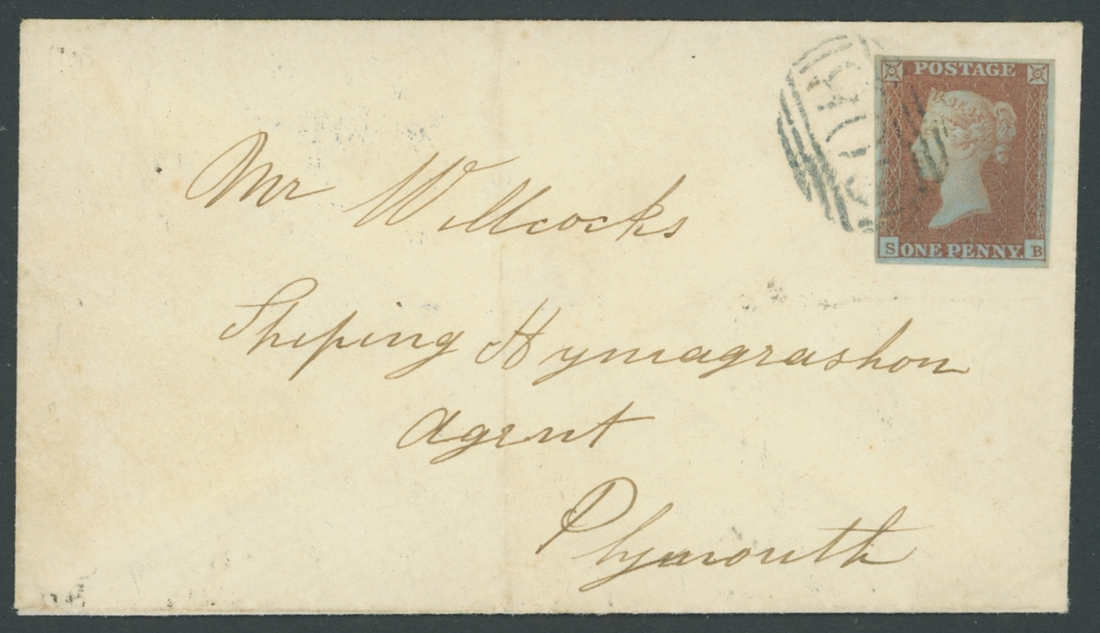 POSTAGE
S ONE PENNY. B
Mr Willcocks
Shiping Hymagrashon
Agent
Plymouth